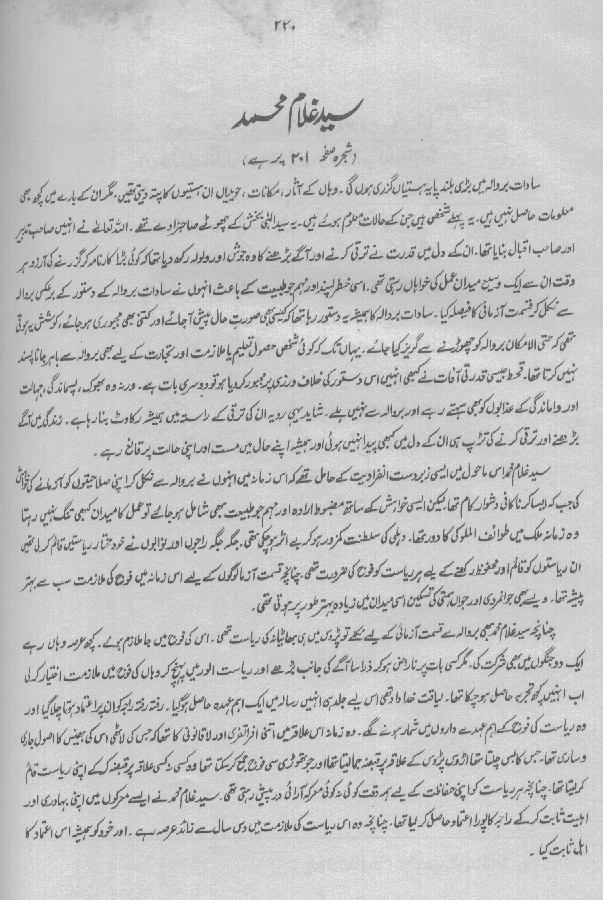 ۲۲۰
سید غلام محمد
(شجرہ صفحہ ۲۰۱ پر ہے)
سادات بروالہ میں بڑی بلند پایہ ہستیاں گزری ہوں گی۔ وہاں کے آثار، مکانات، حویلیاں ان ہستیوں کا پتہ دیتی تھیں۔ مگر ان کے بارے میں کچھ بھی
معلومات حاصل نہیں ہیں۔ یہ پہلے شخص ہیں جن کے حالات معلوم ہوئے ہیں۔ یہ سید الٰہی بخش کے چھوٹے صاحبزادے تھے۔ اللہ تعالیٰ نے انہیں صاحب تدبیر
اور صاحب اقبال بنایا تھا۔ ان کے دل میں قدرت نے ترقی کرنے اور آگے بڑھنے کا وہ جوش اور ولولہ رکھ دیا تھا کہ کوئی بڑا کارنامہ کر گزرنے کی آرزو ہر
وقت ان سے ایک وسیع میدان عمل کی خواہاں رہتی تھی۔ اسی خطر پسند اور مہم جو طبیعت کے باعث انہوں نے سادات بروالہ کے دستور کے برعکس بروالہ
سے نکل کر قسمت آزمائی کا فیصلہ کیا۔ سادات بروالہ کا ہمیشہ یہ دستور رہا تھا کہ کیسی بھی صورت حال پیش آجائے اور کتنی بھی مجبوری ہو جائے، کوشش یہ ہوتی
تھی کہ حتی الامکان بروالہ کو چھوڑنے سے گریز کیا جائے۔ یہاں تک کہ کوئی شخص حصول تعلیم یا ملازمت اور تجارت کے لیے بھی بروالہ سے باہر جانا پسند
نہیں کرتا تھا۔ قحط جیسی قدرتی آفات نے کبھی انہیں اس دستور کی خلاف ورزی پر مجبور کر دیا ہو تو دوسری بات ہے۔ ورنہ وہ بھوک، پسماندگی، جہالت
اور واماندگی کے عذابوں کو بھی سہتے رہے اور بروالہ سے نہیں ہلے۔ شاید یہی رویہ ان کی ترقی کے راستہ میں ہمیشہ رکاوٹ بنا رہا ہے۔ زندگی میں آگے
بڑھنے اور ترقی کرنے کی تڑپ ہی ان کے دل میں کبھی پیدا نہیں ہوئی اور ہمیشہ اپنے حال میں مست اور اپنی حالت پر قانع رہے۔
سید غلام محمد اس ماحول میں ایسی زبردست انفرادیت کے حامل تھے کہ اس زمانہ میں انہوں نے بروالہ سے نکل کر اپنی صلاحیتوں کو آزمانے کی خواہش
کی جب کہ ایسا کرنا کافی دشوار کام تھا۔ لیکن ایسی خواہش کے ساتھ مضبوط ارادہ اور مہم جو طبیعت بھی شامل ہو جائے تو عمل کا میدان کبھی تنگ نہیں رہتا
وہ زمانہ ملک میں طوائف الملوکی کا دور تھا۔ دہلی کی سلطنت کمزور ہو کر بے اثر ہو چکی تھی۔ جگہ جگہ راجوں اور نوابوں نے خود مختار ریاستیں قائم کر لی تھیں
ان ریاستوں کو قائم اور محفوظ رکھنے کے لیے ہر ریاست کو فوج کی ضرورت تھی۔ چنانچہ قسمت آزما لوگوں کے لیے اس زمانہ میں فوج کی ملازمت سب سے بہتر
پیشہ تھا۔ ویسے بھی جوانمردی اور جواں ہمتی کی تسکین اسی میدان میں زیادہ بہتر طور پر ہوتی تھی۔
چنانچہ سید غلام محمد بھی بروالہ سے قسمت آزمائی کے لیے نکلے تو پڑوس میں ہی بھاٹیانہ کی ریاست تھی۔ اس کی فوج میں جا ملازم ہوئے۔ کچھ عرصہ وہاں رہے
ایک دو جنگوں میں بھی شرکت کی۔ مگر کسی بات پر ناراض ہو کر ذرا سا آگے کی جانب بڑھے اور ریاست الور میں پہنچ کر وہاں کی فوج میں ملازمت اختیار کر لی
اب انہیں کچھ تجربہ حاصل ہو چکا تھا۔ لیاقت خداداد تھی اس لیے جلد ہی انہیں رسالہ میں ایک اہم عہدہ حاصل ہو گیا۔ رفتہ رفتہ راجہ کو ان پر اعتماد ہوتا چلا گیا اور
وہ ریاست کی فوج کے اہم عہدے داروں میں شمار ہونے لگے۔ وہ زمانہ اس علاقہ میں اتنی افراتفری اور لاقانونی کا تھا کہ جس کی لاٹھی اس کی بھینس کا اصول جاری
و ساری تھا۔ جس کا بس چلتا تھا اڑوس پڑوس کے علاقہ پر قبضہ جما لیتا تھا اور جو تھوڑی سی فوج جمع کر سکتا تھا وہ کسی نہ کسی علاقہ پر قبضہ کر کے اپنی ریاست قائم
کر لیتا تھا۔ چنانچہ ہر ریاست کو اپنی حفاظت کے لیے ہمہ وقت کوئی نہ کوئی معرکہ آرائی درپیش رہتی تھی۔ سید غلام محمد نے ایسے معرکوں میں اپنی بہادری اور
اہلیت ثابت کر کے راجہ کا پورا اعتماد حاصل کر لیا تھا۔ چنانچہ وہ اس ریاست کی ملازمت میں دس سال سے زائد عرصہ رہے۔ اور خود کو ہمیشہ اس اعتماد کا
اہل ثابت کیا۔